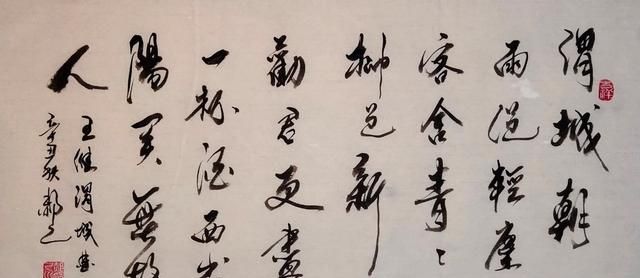 渭城朝
雨浥輕塵
客舍青〻
柳色新
勸君更盡
一杯酒西出
陽關無故
人
王維渭城曲
辛丑秋